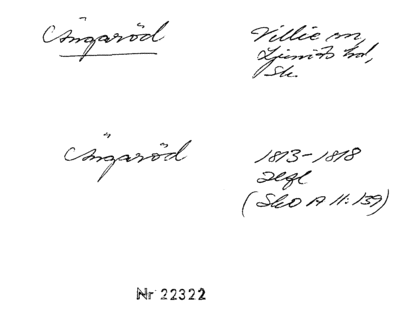 Ängaröd
Villie sn,
Ljunits hd,
Sk.
Ängaröd
1813-1818
Hfl
(SkO A II:159)
Nr 22322